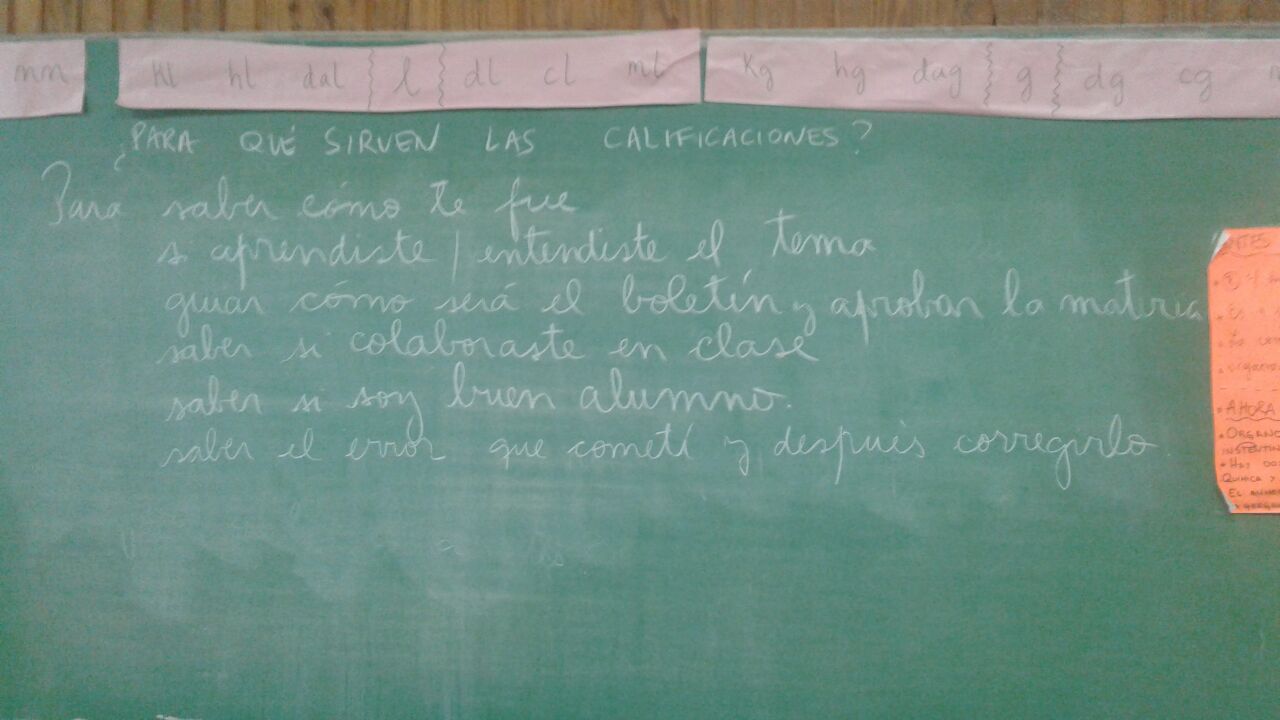 mm
Kl hl dal l dl cl ml
Kg hg dag g dg cg
¿PARA QUÉ SIRVEN LAS CALIFICACIONES?
Para saber cómo te fue
si aprendiste / entendiste el tema
guiar cómo será el boletín y aprobar la materia
saber si colaboraste en clase
saber si soy buen alumno.
saber el error que cometí y después corregirlo
AHORA
QUÍMICA Y